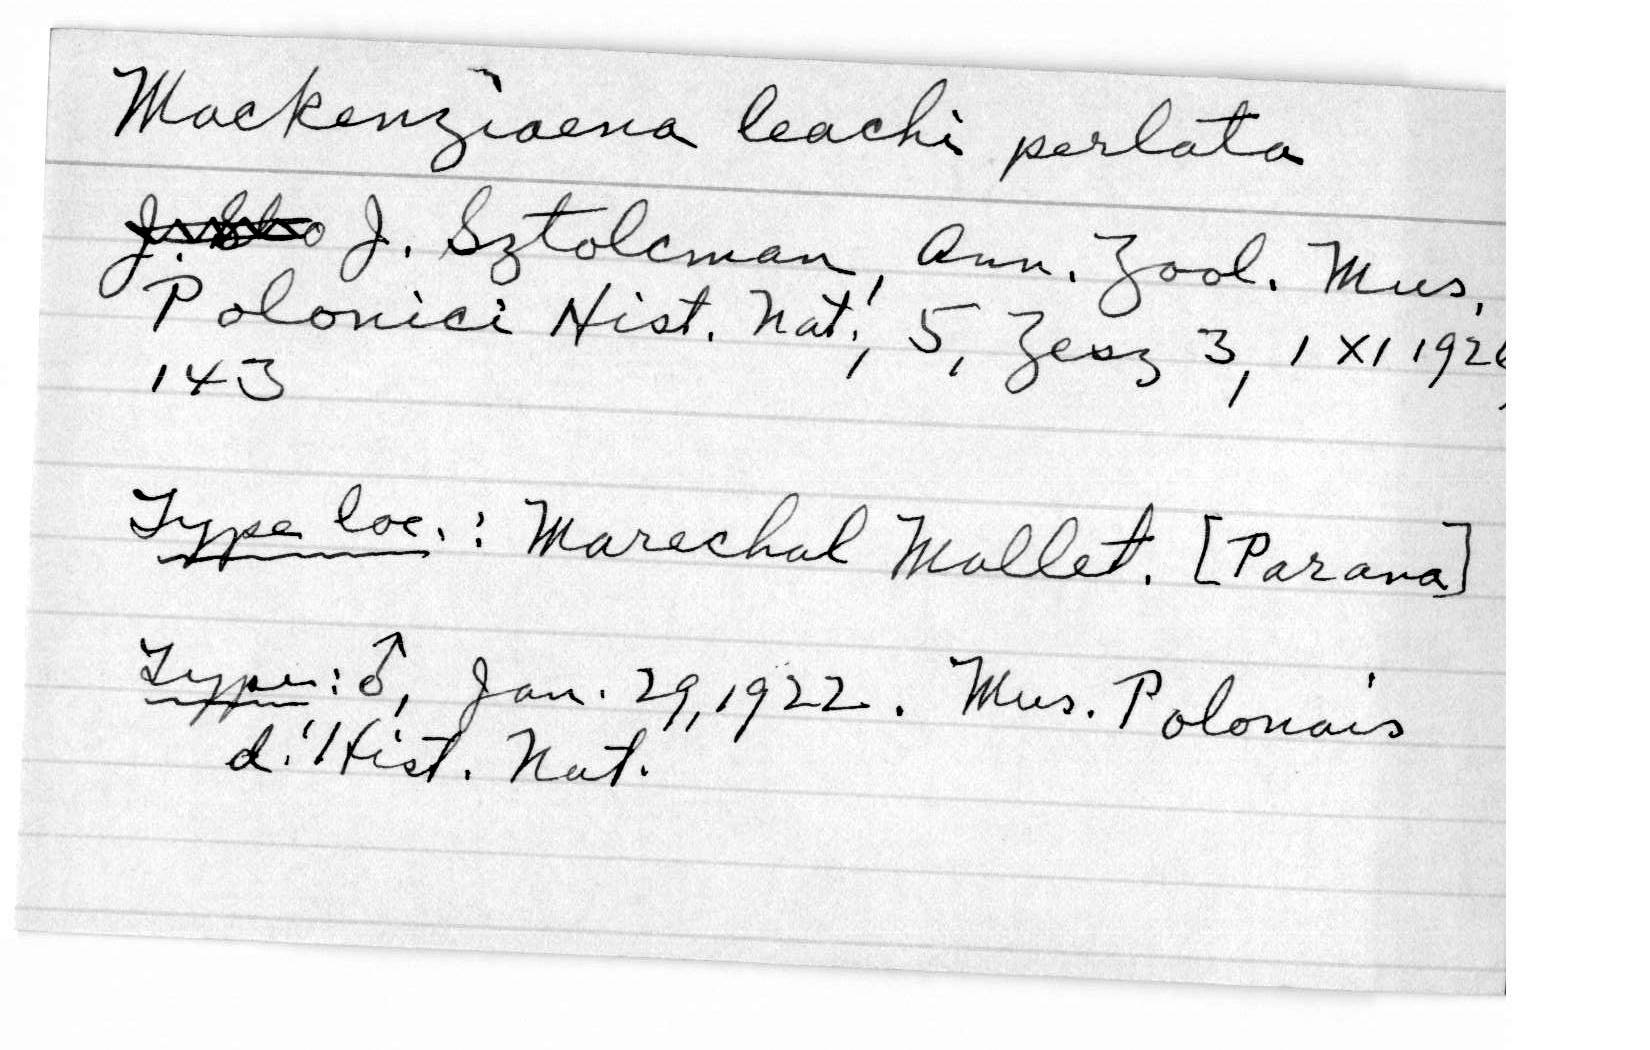 Mackenziaena leachi perlata
J. Sztolcman, Ann. Zool. Mus.
Polonici Hist. Nat., 5, Zesz 3, 1 XI 192
143
Type loc.: Marechal Mallet. [Parana]
Type: ♂, Jan. 29, 1922. Mus. Polonais
d.'Hist. Nat.